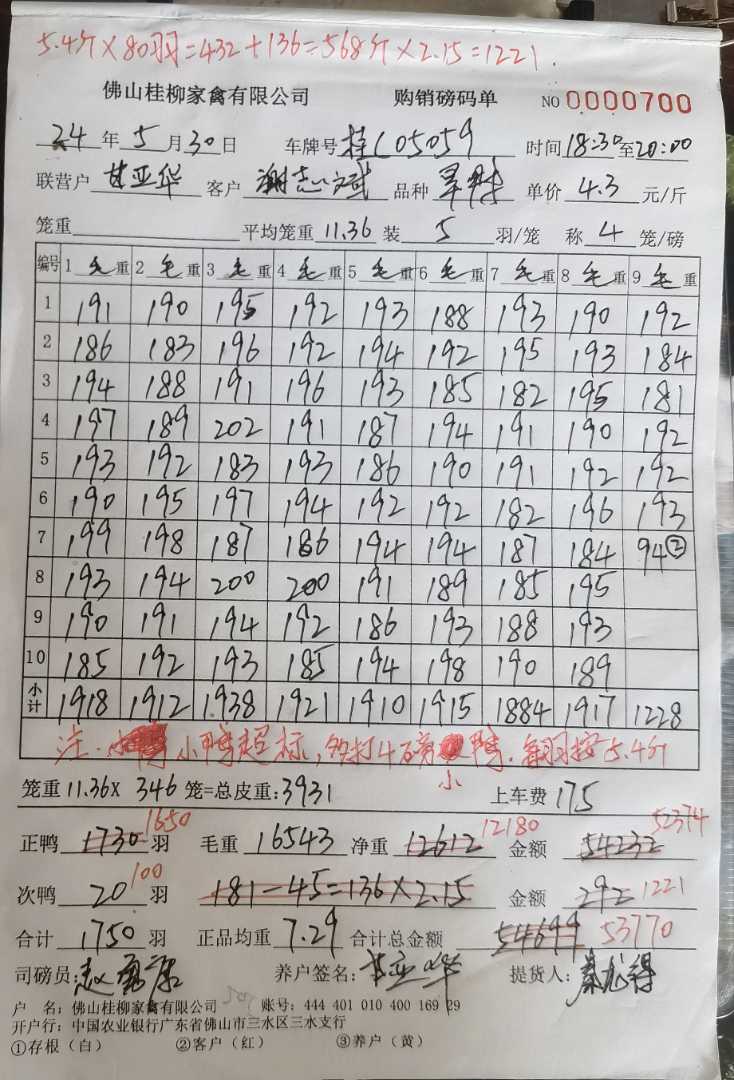 5.4斤×80羽=432+136=568斤×2.15=1221.
佛山桂柳家禽有限公司 购销磅码单 NO 0000700
24年5月30日 车牌号桂L05059 时间18:30至20:00
联营户甘亚华 客户谢志斌 品种 单价4.3元/斤
笼重 平均笼重11.36 装5羽/笼 称4笼/磅
编号 1毛重 2毛重 3毛重 4毛重 5毛重 6毛重 7毛重 8毛重 9毛重
1 191 190 195 192 193 188 193 190 192
2 186 183 196 192 194 192 195 193 184
3 194 188 191 196 193 185 182 195 181
4 197 189 202 191 187 194 191 190 192
5 193 192 183 193 186 190 191 192 192
6 190 195 197 194 192 192 182 196 193
7 199 198 187 186 194 194 187 184 94②
8 193 194 200 200 191 189 185 195
9 190 191 194 192 186 193 188 193
10 185 192 193 185 194 198 190 189
小计 1918 1912 1938 1921 1910 1915 1884 1917 1228
注. 小鸭超标,多打4磅小鸭.每羽按5.4斤
笼重11.36×346笼=总皮重:3931 上车费175
正鸭1730 1650羽 毛重16543 净重12612 12180 金额54232 52374
次鸭20 100羽 181-45=136×2.15 金额292 1221
合计1750羽 正品均重7.29 合计总金额54699 53770
司磅员: 养户签名:甘亚华 提货人:秦龙得
户 名:佛山桂柳家禽有限公司 账号:444 401 010 400 169 29
开户行:中国农业银行广东省佛山市三水区三水支行
①存根(白) ②客户(红) ③养户(黄)